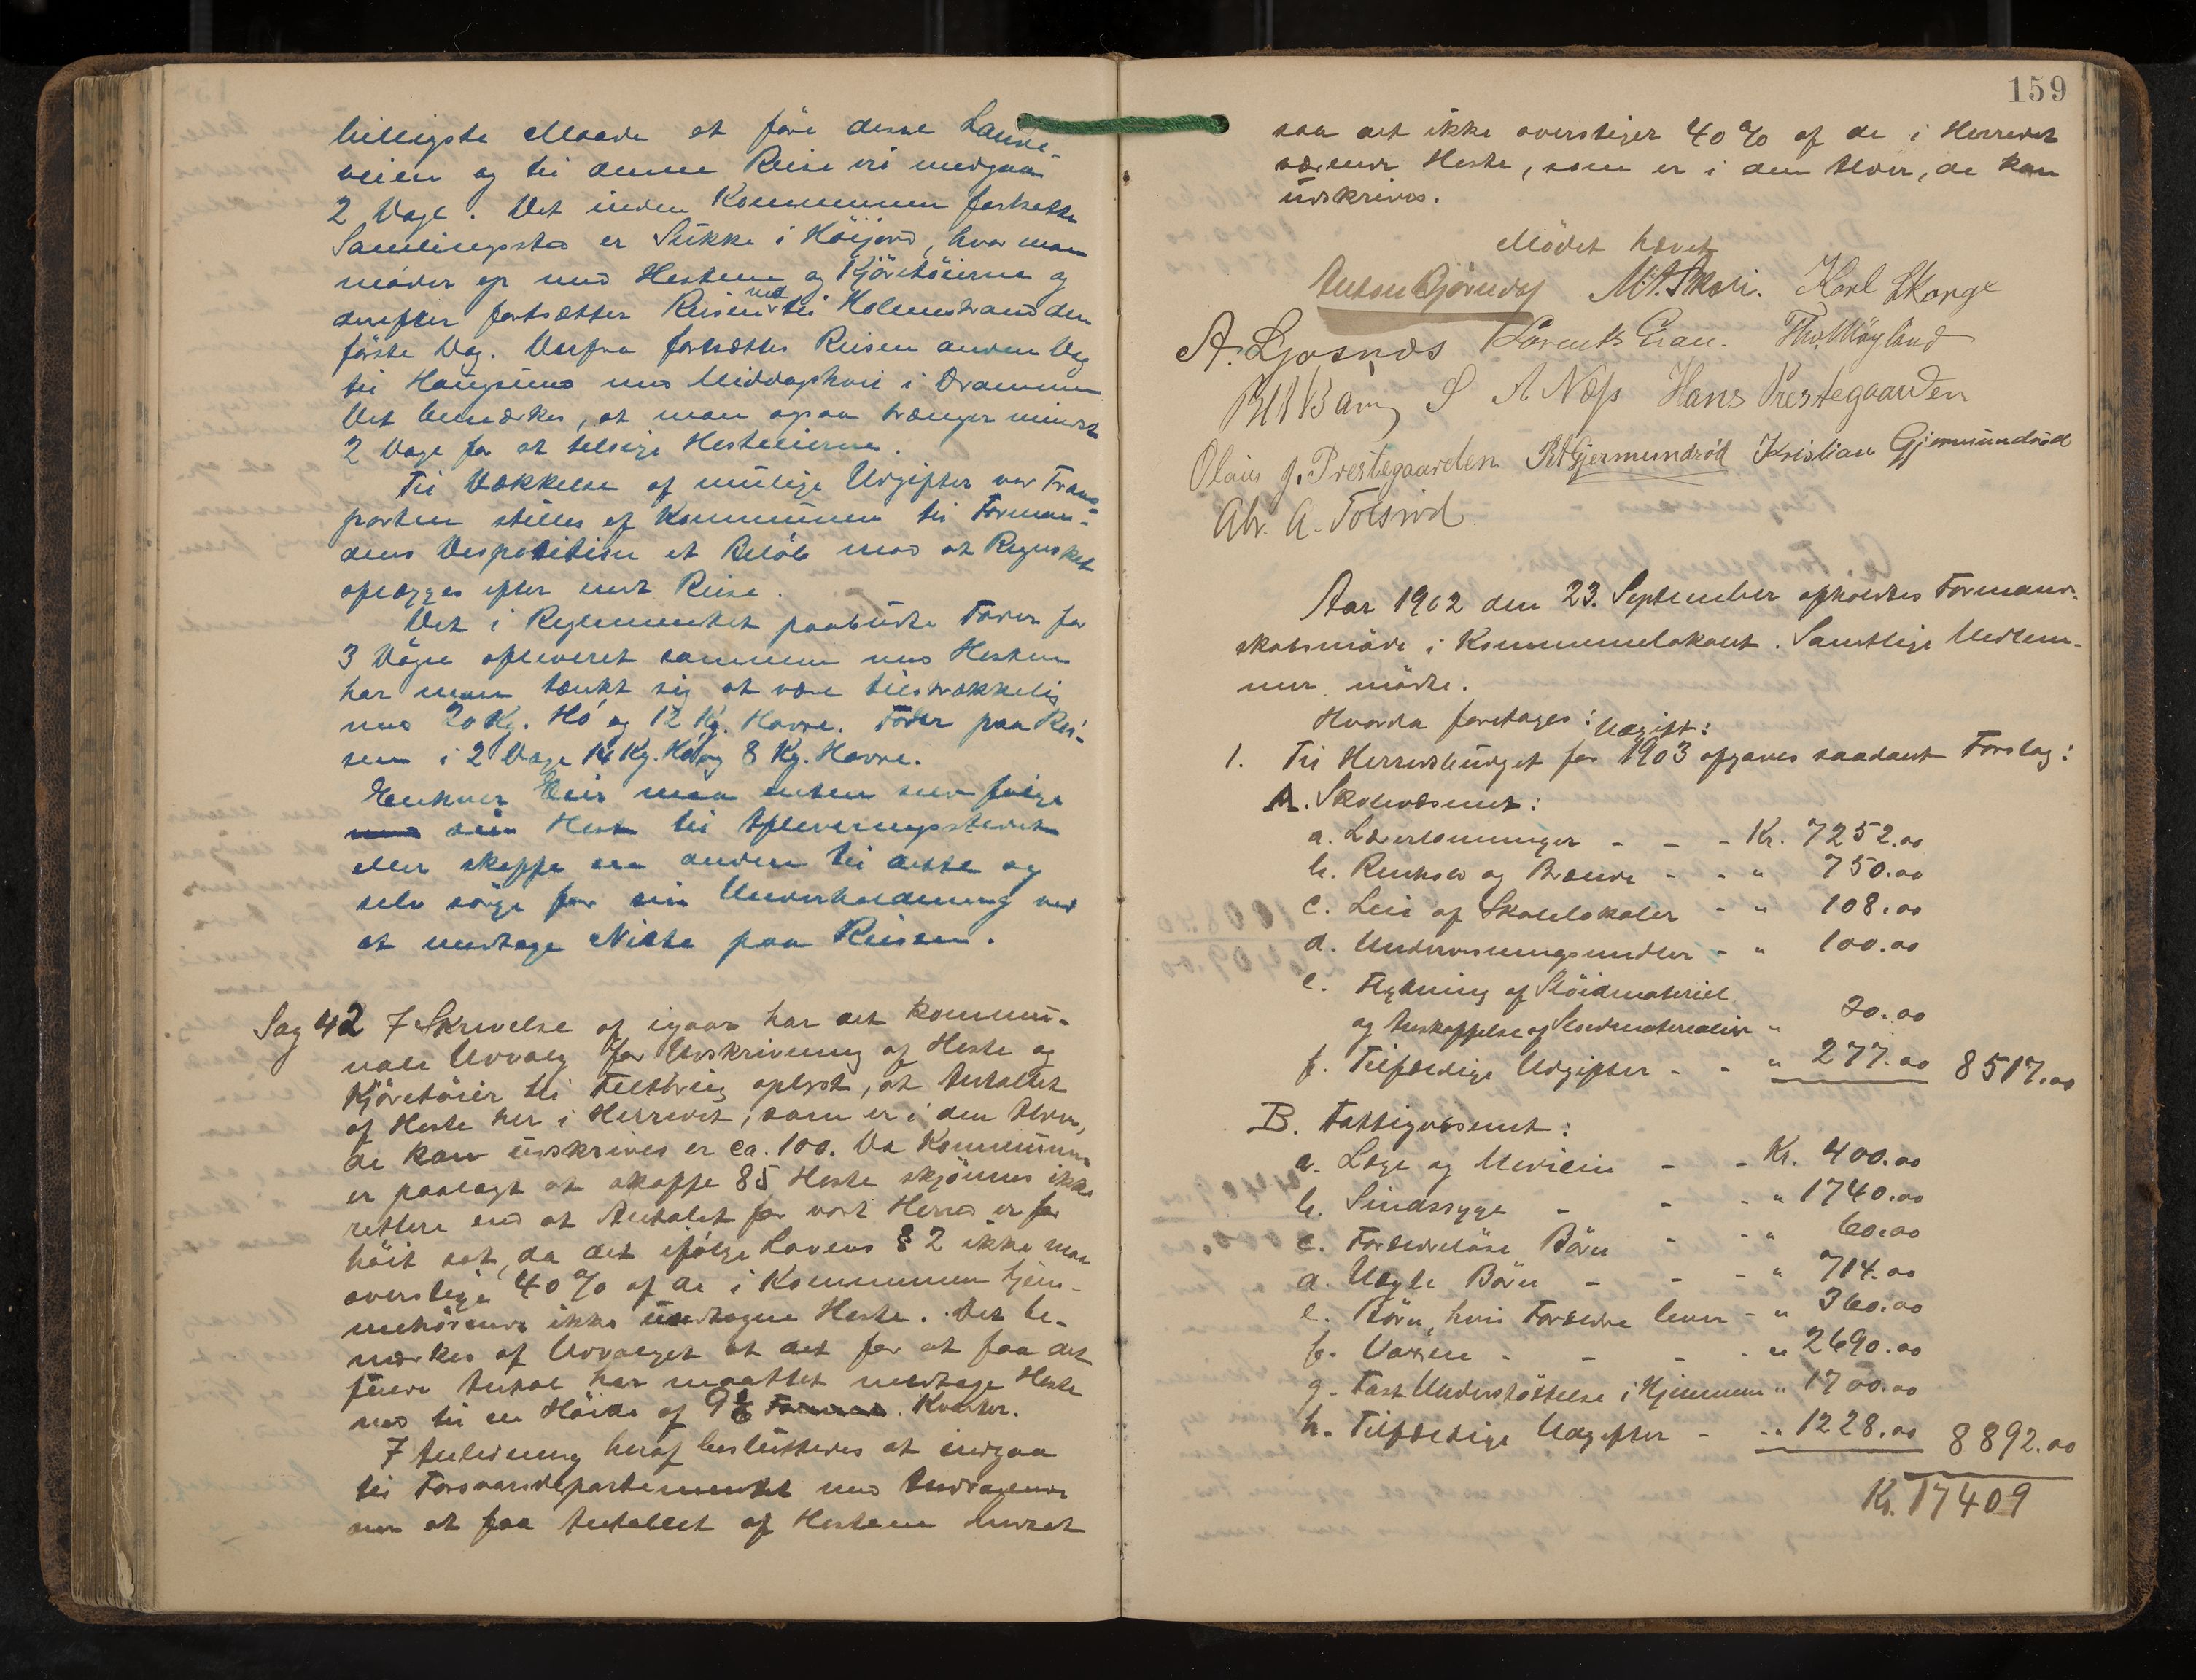 billigste Maade at före disse Lande-
veien og til denne Reise vil medgaa
2 Dage. Det inden Kommunen fastsatte
Samlingssted er Sukke i Höijord, hvor man
möder op med Hestene og Kjöretöierne og
derefter fortsætter Reisen ned til Holmestrand den
förste Dag. Derfra fortsættes Reisen anden Dag
til Haugsund med Middagshvil i Drammen
Det bemærkes, at man ogsaa trænger mindst
2 Dage for at tilsige Hesteeierne.
Til Dækkelse af mulige Udgifter ved Trans-
porten stilles af Kommunen til Forman-
dens Desposition et Belöb mod at Regnskab
oplægges efter endt Reise.
Det i Reglementet paabudte Foder for
3 Dögn afleveret sammen med Hesten
har man tænkt sig at være tilstrækkelig
med 20 Kg. Hö og 12 Kg. Havre. Foder paa Rei-
sen i 2 Dage 14 Kg. Hö og 8 Kg. Havre.
Enhver Eier maa enten selv fölge
med sin Hest til Afleveringsstedet
eller skaffe en anden til dette og
selv sörge for sin Underholdning ved
at medtage Niste paa Reisen.
Sag 42 I Skrivelse af igaar har det kommu-
nale Udvalg for Udskrivning af Heste og
Kjöretöier til Feltbrug oplyst, at Antallet
af Heste her i Herredet, som er i den Alder,
de kan udskrives er ca. 100. Da Kommunen
er paalagt at skaffe 85 Heste skjönnes ikke
rettere end at Antalet for vort Herred er for
höit sat, da det ifölge Lovens § 2 ikke maa
overstige 40 % af de i Kommunen hjem-
mehörende ikke undtagne Heste. Det be-
mærkes af Udvalget at det for at faa det
fulde Antal har maattet medtage Heste
ned til en Höide af 9 Kvarter.
I Anledning heraf besluttedes at indgaa
til Forsvarsdepartementet med Andragende
om at faa Antallet af Hestene nedsat
159
saa det ikke overstiger 40 % af de i Herredet
værende Heste, som er i den Alder, de kan
udskrives.
Mödet hævet
Anton Bjørndal M. A. Skoli. Karl Skorge
A. Ljosnæs Lorents Gran. Thv. Möyland
S A Næss Hans Prestegaarden
Olaus J. Prestegaarden R Gjermundröd Kristian Gjermundröd
Abr. A. Tolsrød
Aar 1902 den 23. September afholdtes Formand-
skabsmöde i Kommunelokalet. Samtlige Medlem-
mer mödte.
Hvorda foretages: Udgift:
1. Til Herredsbudget for 1903 afgaves saadant Forslag:
A. Skolevæsenet:
a. Lærerlønninger - - - Kr. 7252.00
b. Renhold og Brænde - - " 750.00
c. Leie af Skolelokaler - " 108.00
d. Undervisningsmidler - " 100.00
e. Flytning af Slöidmateriel
og Anskaffelse af Slöidmaterialier " 30.00
f. Tilfældige Udgifter - - " 277.00 8517.00
B. Fattigvæsenet:
a. Læge og Medicin - - Kr. 400.00
b. Sindssyge - - - " 1740.00
c. Forældrelöse Börn - - " 60.00
d. Uægte Börn - - - " 714.00
e. Börn, hvis Forældre lever - " 360.00
f. Voxne - - - - " 2690.00
g. Fast Understöttelse i Hjemmene " 1700.00
h. Tilfældige Udgifter - - " 1228.00 8892.00
Kr. 17409